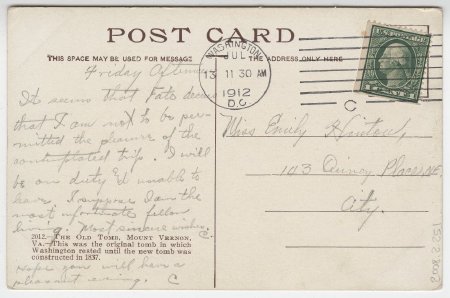 POST CARD
THIS SPACE MAY BE USED FOR MESSAGE
THE ADDRESS ONLY HERE
WASHINGTON
JUL
13 11 30 AM
1912
D.C.
C
Friday
It seems that Fate
that I am not to be per-
mitted the pleasure of the
contemplated trip. I will
be on duty & unable to
leave. I suppose I am the
most unfortunate fellow
living. Most sincere wishes.
C.
2012—THE OLD TOMB, MOUNT VERNON,
VA.—This was the original tomb in which
Washington rested until the new tomb was
constructed in 1837.
Hope you will have a
pleasant evening. C
Miss Emily
143 Quincy Place, NE.
City.